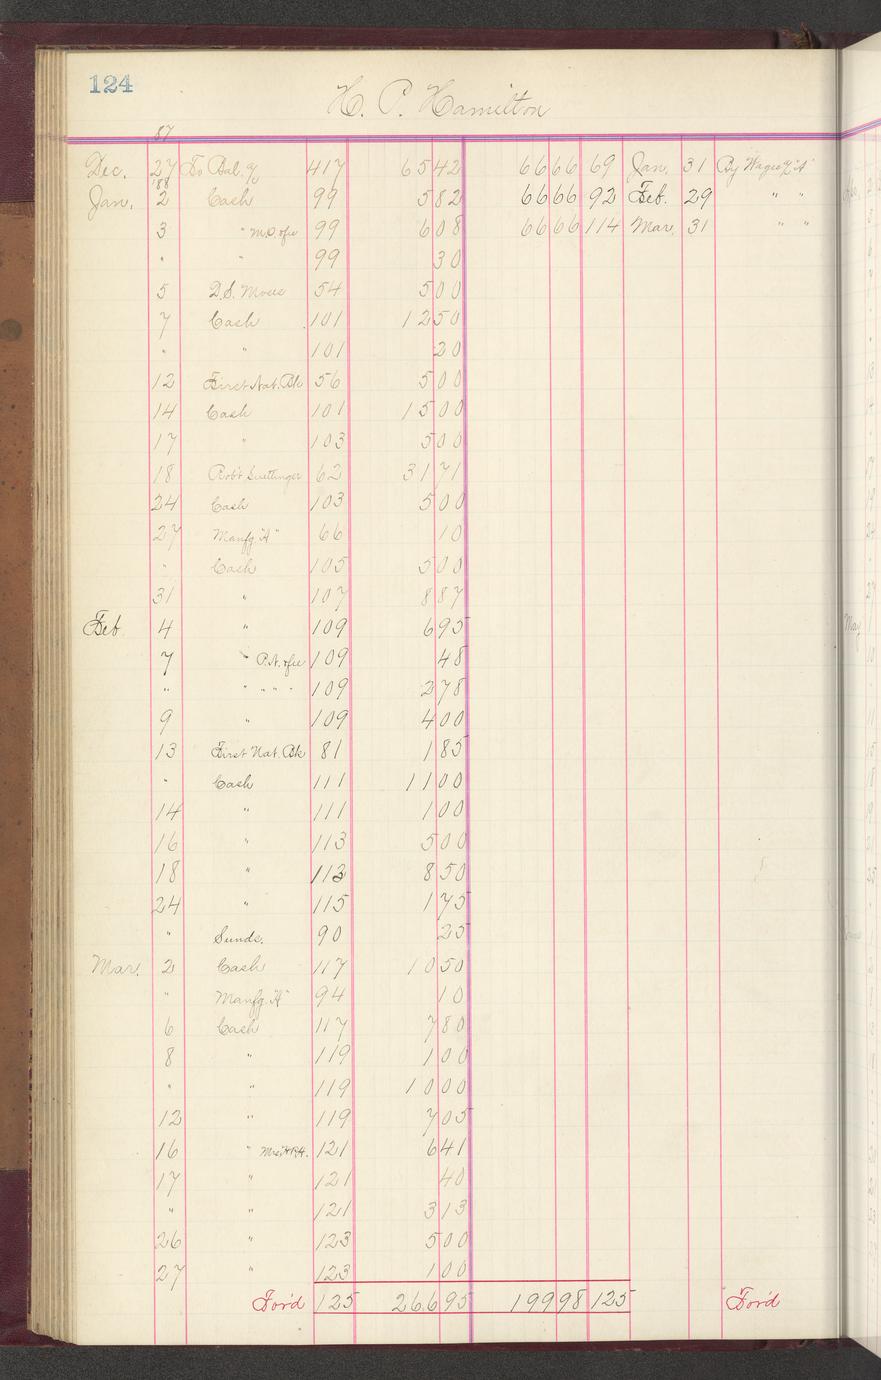 124
H. P. Hamilton
87
Dec. 27 To Bal. % 417 65 42 66 66 69 Jan. 31 By Wages % "A"
'88
Jan. 2 Cash 99 5 82 66 66 92 Feb. 29 " "
3 " 99 6 08 66 66 114 Mar. 31 " "
" " 99 30
5 D.S. 54 5 00
7 Cash 101 12 50
" " 101 20
12 First Nat. Bk 56 5 00
14 Cash 101 15 00
17 " 103 5 00
18 Rob't 62 31 71
24 Cash 103 5 00
27 Manfg "A" 66 10
" Cash 105 5 00
31 " 107 8 87
Feb 4 " 109 6 95
7 " 109 48
" " " " " 109 2 78
9 " 109 4 00
13 First Nat. Bk 81 1 85
" Cash 111 11 00
14 " 111 1 00
16 " 113 5 00
18 " 113 8 50
24 " 115 1 75
" Sunds. 90 25
Mar. 2 Cash 117 10 50
" Manfg "A" 94 10
6 Cash 117 7 80
8 " 119 1 00
" " 119 10 00
12 " 119 7 05
16 " Mrs. H.P.H. 121 6 41
17 " 121 40
" " 121 3 13
26 " 123 5 00
27 " 123 1 00
For'd 125 266 95 199 98 125 For'd